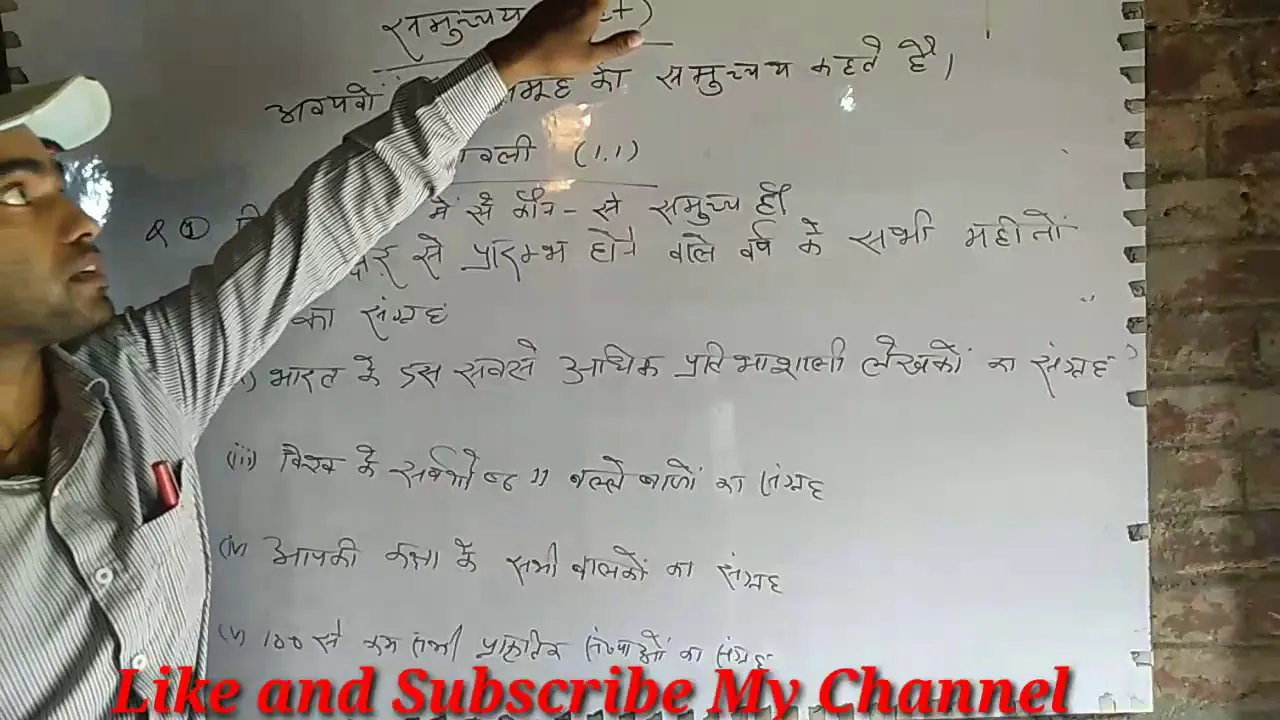 समुच्चय
अवयवों समूह को समुच्चय कहते है।
वली (1.1)
Q ① में से कौन-से समुच्य ही
से प्रारम्भ होने वाले वर्ष के सभी महीनों
का संग्रह
भारत के दस सबसे अधिक प्रतिभाशाली लेखकों का संग्रह
(iii) विश्व के सर्वश्रेष्ठ 11 बल्लेबाजों का संग्रह
(iv) आपकी कक्षा के सभी बालकों का संग्रह
(v) 100 से कम सभी प्राकृतिक संख्याओं का संग्रह
Like and Subscribe My Channel